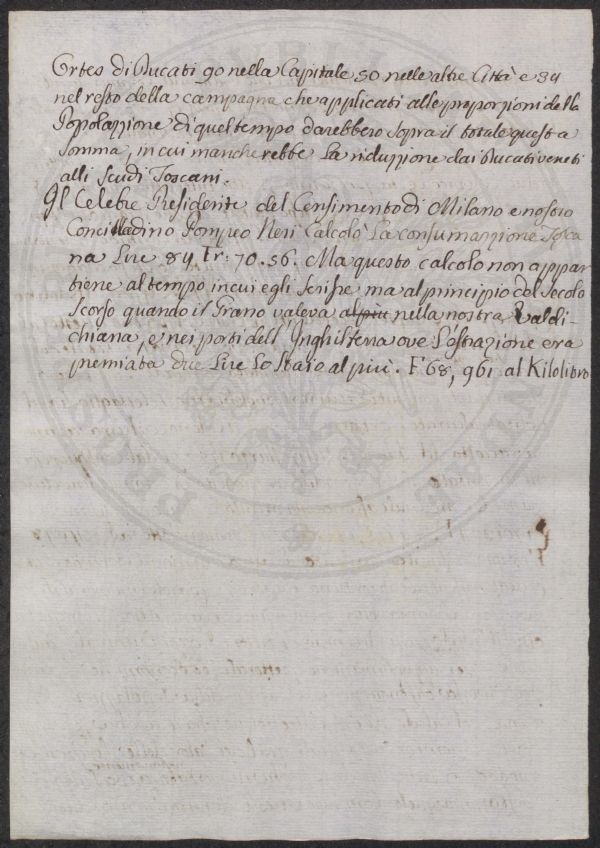 Ortes di Ducati 90 nella Capitale 50 nelle altre Città e 34
nel resto della campagna che applicati alle proporzioni della
Popolazzione di quel tempo darebbero sopra il totale questa
somma, in cui mancherebbe la riduzzione dai Ducati veneti
alli Scudi Toscani.
Il Celebre Presidente del Censimento di Milano e nostro
Concittadino Pompeo Neri Calcolò La consumazzione Tosca
na Lire 84, Fr: 70.56. Ma questo calcolo non appar
tiene al tempo in cui egli scrisse ma al principio del Secolo
scorso quando il Grano valeva al più nella nostra Valdi-
chiana, e nei porti dell'Inghilterra ove l'estrazione era
premiata due Lire Lo Staio al più. F 68, 961 al Kilolibro